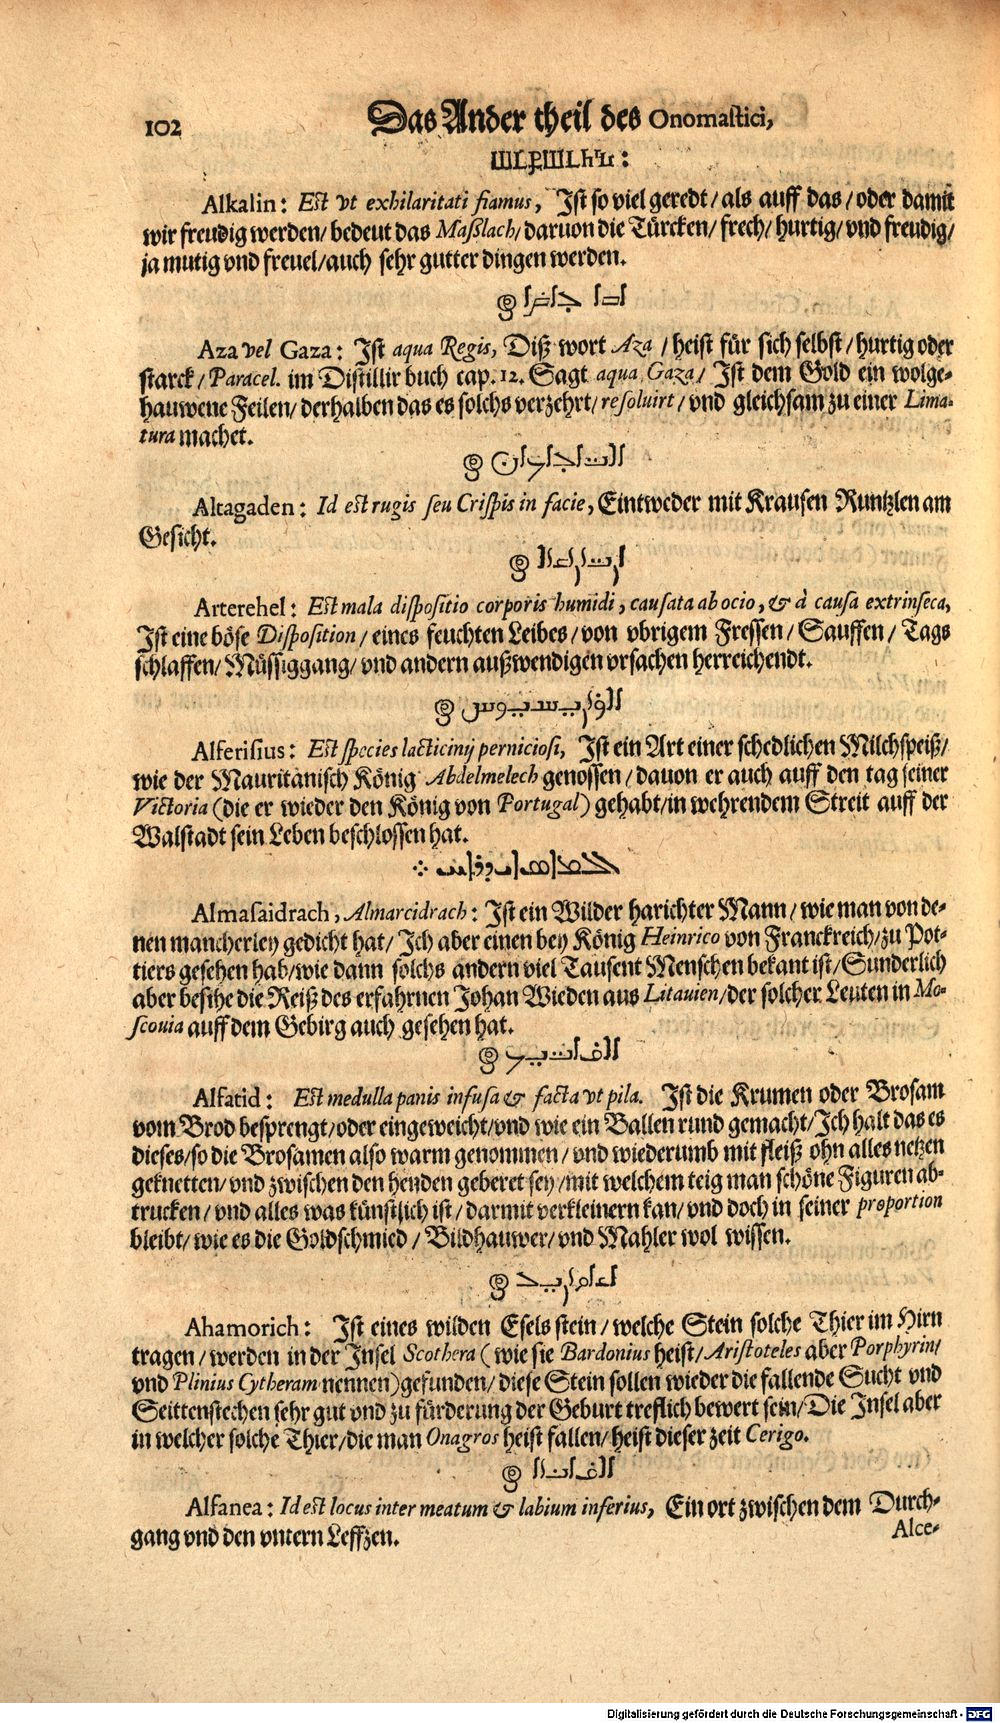 102 Das Ander theil des Onomastici,
Alkalin: Est vt exhilaritati fiamus, Ist so viel geredt/ als auff das/ oder damit
wir freudig werden/ bedeut das Maßlach/ daruon die Türcken/ frech/ hurtig/ vnd freudig/
ja mutig vnd freuel/ auch sehr gutter dingen werden.
Aza vel Gaza: Ist aqua Regis, Diß wort Aza / heist für sich selbst/ hurtig oder
starck/ Paracel. im Distillir buch cap. 12. Sagt aqua Gaza/ Ist dem Gold ein wolge-
hauwene Feilen/ derhalben das es solchs verzehrt/ resoluirt/ vnd gleichsam zu einer Lima-
tura machet.
Altagaden: Id est rugis seu Crispis in facie, Eintweder mit Krausen Runtzlen am
Gesicht.
Arterehel: Est mala dispositio corporis humidi, causata ab ocio, & à causa extrinseca,
Ist eine böse Disposition/ eines feuchten Leibes/ von vbrigem Fressen/ Sauffen/ Tags
schlaffen/ Müssiggang/ vnd andern außwendigen vrsachen herreichendt.
Alferisius: Est species lacticinij perniciosi, Ist ein Art einer schedlichen Milchspeiß/
wie der Mauritanisch König Abdelmelech genossen/ dauon er auch auff den tag seiner
Victoria (die er wieder den König von Portugal) gehabt/ in wehrendem Streit auff der
Walstadt sein Leben beschlossen hat.
Almasaidrach, Almarcidrach: Ist ein Wilder harichter Mann/ wie man von de-
nen mancherley gedicht hat/ Ich aber einen bey König Heinrico von Franckreich/ zu Pot-
tiers gesehen hab/ wie dann solchs andern viel Tausent Menschen bekant ist/ Sunderlich
aber besihe die Reiß des erfahrnen Johan Wieden aus Litauien/ der solcher Leuten in Mo-
scouia auff dem Gebirg auch gesehen hat.
Alfatid: Est medulla panis infusa & facta vt pila. Ist die Krumen oder Brosam
vom Brod besprengt/ oder eingeweicht/ vnd wie ein Ballen rund gemacht/ Ich halt das es
dieses/ so die Brosamen also warm genommen/ vnd wiederumb mit fleiß ohn alles netzen
geknetten/ vnd zwischen den henden geberet sey/ mit welchem teig man schöne Figuren ab-
trucken/ vnd alles was künstlich ist/ darmit verkleinern kan/ vnd doch in seiner proportion
bleibt/ wie es die Goldschmied/ Bildhauwer/ vnd Mahler wol wissen.
Ahamorich: Ist eines wilden Esels stein/ welche Stein solche Thier im Hirn
tragen/ werden in der Insel Scothera (wie sie Bardonius heist/ Aristoteles aber Porphyrin/
vnd Plinius Cytheram nennen) gefunden/ diese Stein sollen wieder die fallende Sucht vnd
Seittenstechen sehr gut vnd zu fürderung der Geburt treflich bewert sein/ Die Insel aber
in welcher solche Thier/ die man Onagros heist fallen/ heist dieser zeit Cerigo.
Alfanea: Id est locus inter meatum & labium inferius, Ein ort zwischen dem Durch-
gang vnd den vntern Leffzen.
Alce-
Digitalisierung gefördert durch die Deutsche Forschungsgemeinschaft - DFG